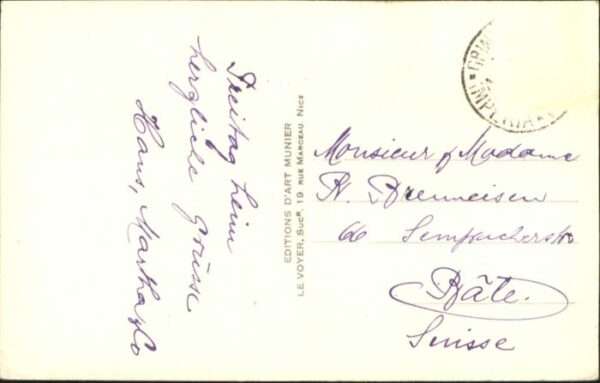 Freitag heim
herzliche Grüsse
Hans, Martha & Co
EDITIONS D'ART MUNIER
LE VOYER, Sucr, 19 RUE MARCEAU. NICE
Monsieur & Madame
Brenneisen
66 Sempacherstr
Bâle.
Suisse
IMPERIA